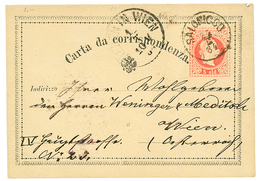 WIEN
SALONICCO
Carta da corrispondenza.
Indirizzo
Wohlgeboren
den Herren Weninger & Meditsch
Wien
IV Hauptstrasse (Österreich)
No. 23.